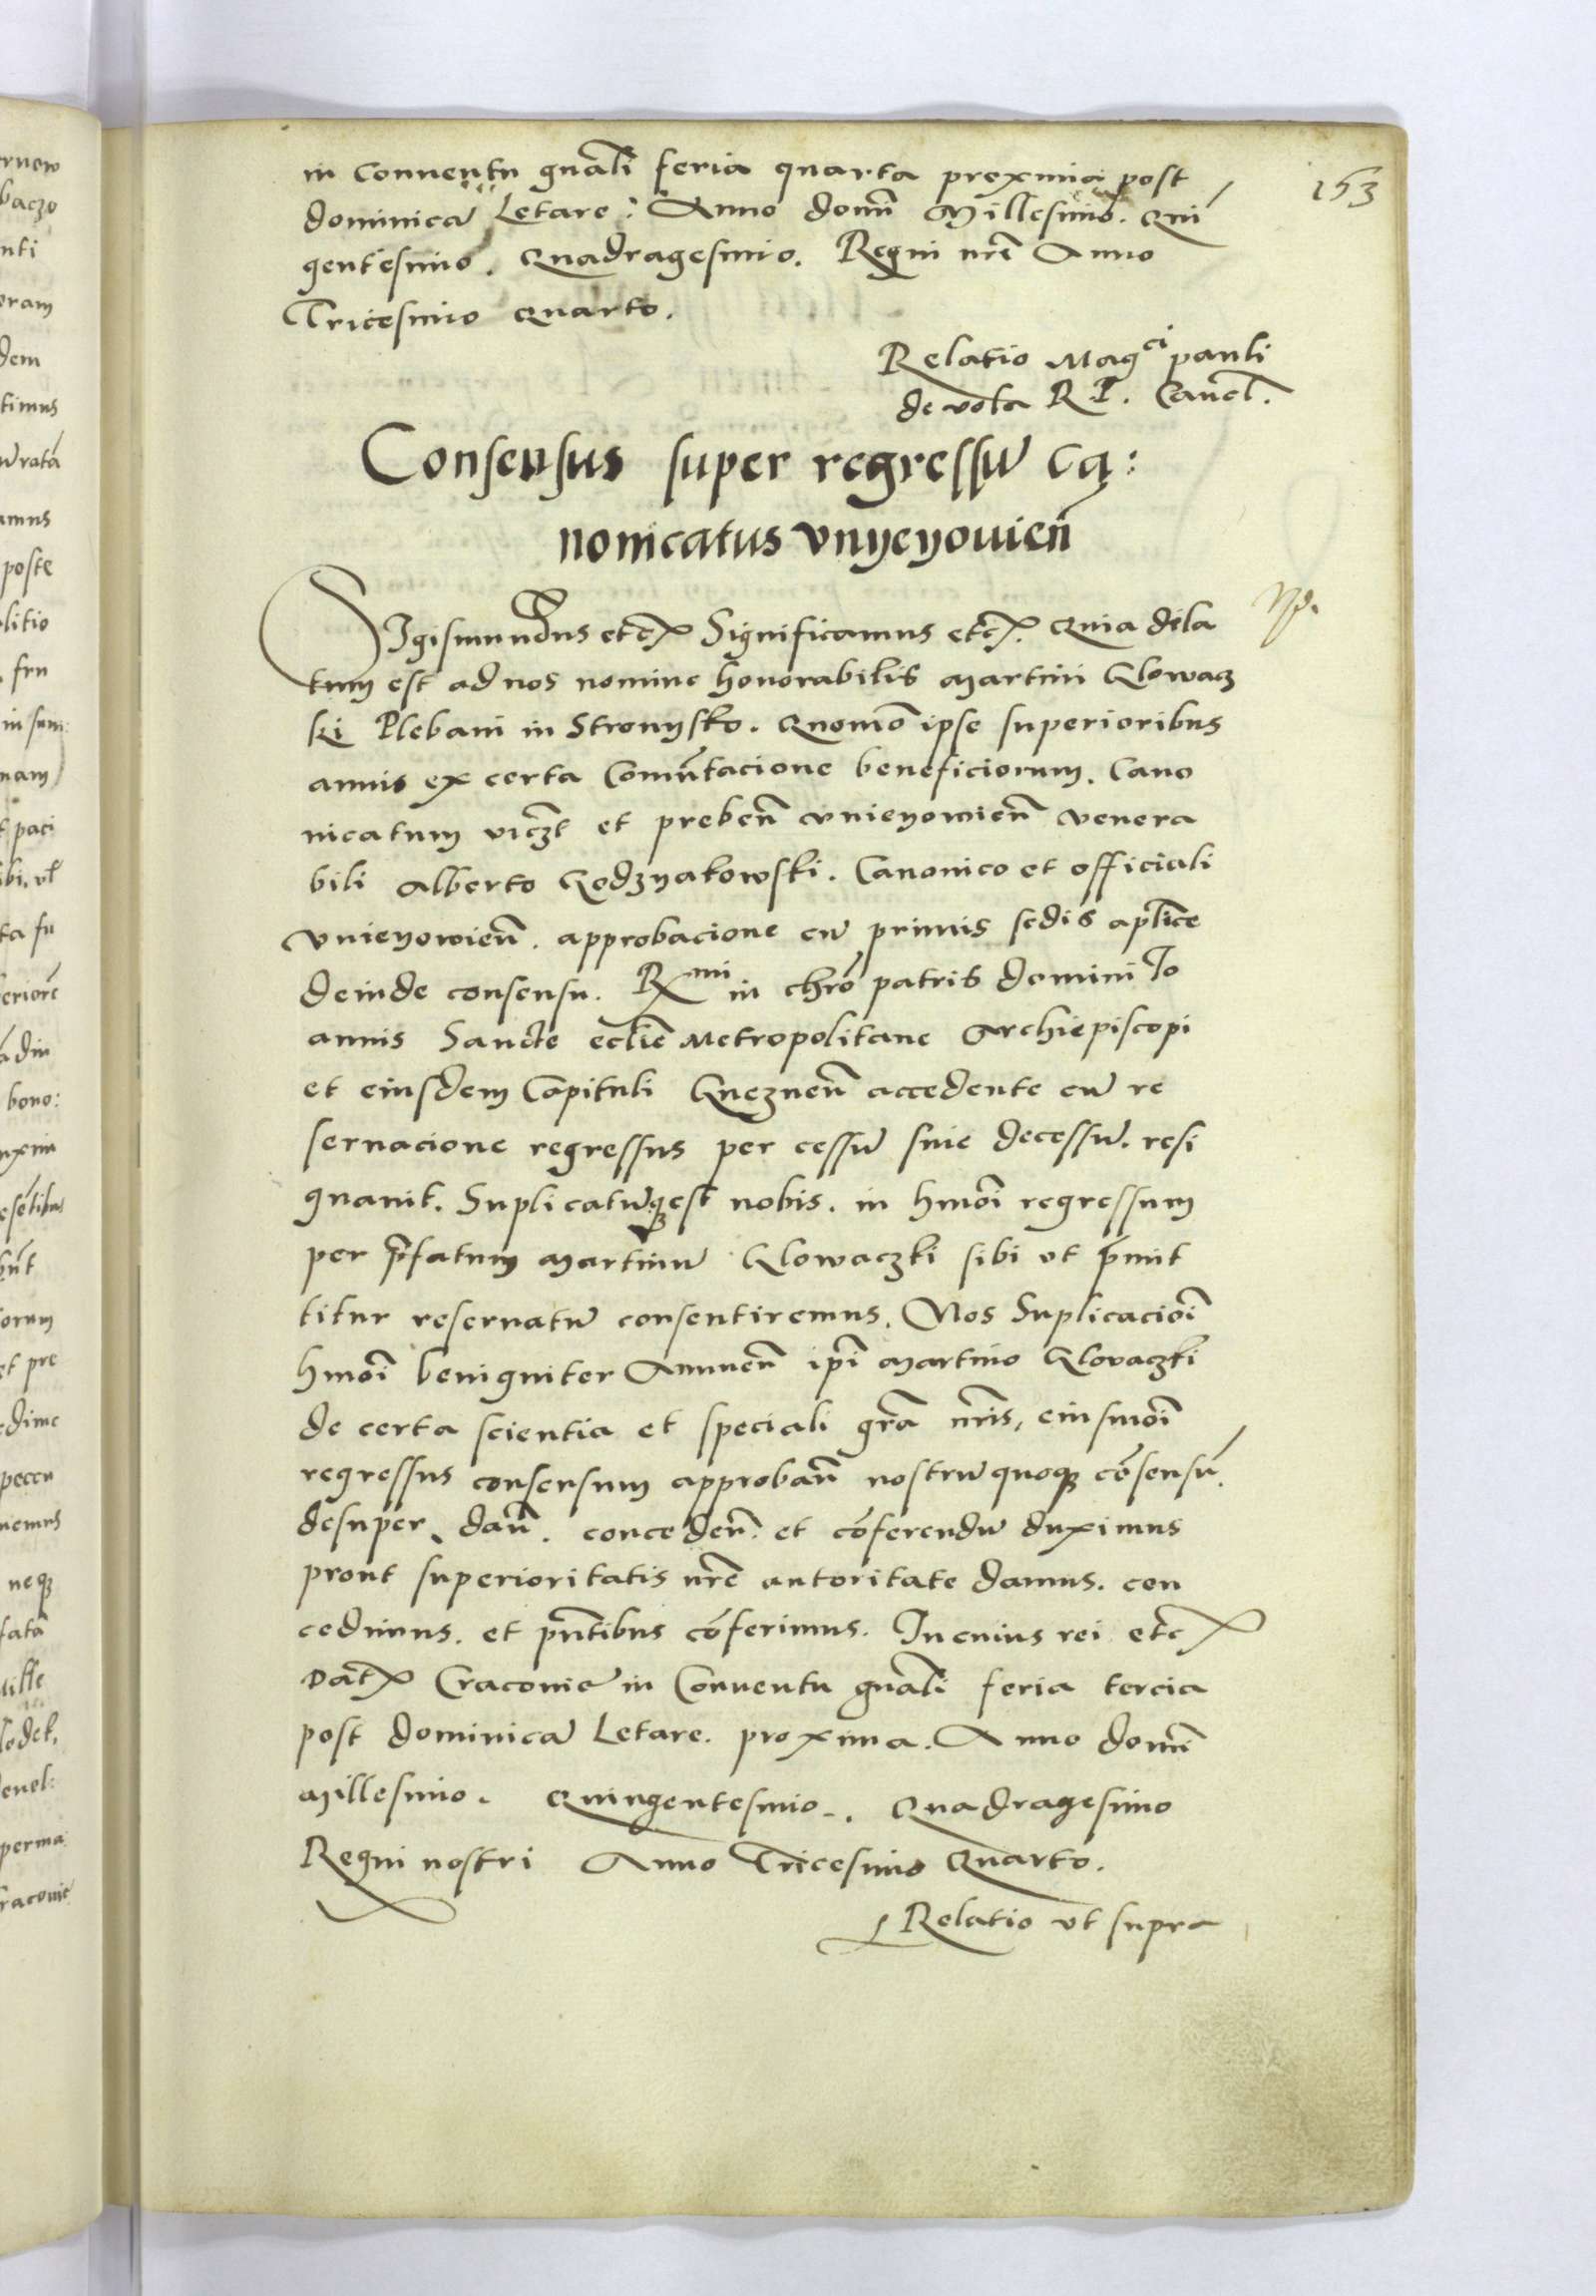 153
in Conuentu gnāli feria quarta proxima post
dominicā Letare: Anno domī Millesimo. Quī
gentesimo. Quadragesimo. Regni nrī Anno
Tricesimo quarto.
Relatio Mag^ci pauli
de vola R. P. Cancel.
Consensus super regressū Ca:
nonicatus vnyeyouień
Sigismundus etc Significamus etc. Quia dela
tum est ad nos nomine honorabilis Martini Glowacz
ki Plebani in Stronysko. Quomō ipse superioribus
annis ex certa Comutacione beneficiorum. Cano
nicatum viczt et prebeń vnieyowień venera
bili Alberto Kedzyakowski. Canonico et officiali
vnieyowień. approbacione cū primis sedis aplice
deinde consensu. R^mi in chrō patris domini Io
annis Sancte ecclie Metropolitane Archiepiscopi
et eiusdem Capituli Gnezneń accedente cū re
seruacione regressus per cessū siue decessū. resi
gnauit. Suplicatūq̄ est nobis. in hmōi regressum
per p̄fatum Martinū Glowaczki sibi vt p̄mit
titur reseruatū consentiremus. Nos Suplicacioī
hmōi benigniter Annueń ipī Martino Glovaczki
de certa scientia et speciali grā nris, eiusmōi
regressus consensum approbań nostrū quoq̄ cōsensū
desuper dań. conceden̄. et cōferendū duximus
prout superioritatis nrē autoritate damus. con
cedimus. et pn̄tibus cōferimus. In cuius rei etc
Dat Cracouie in Conuentu gnāli feria tercia
post dominicā Letare. proxima. Anno domī
Millesimo. Quingentesimo. Quadragesimo
Regni nostri Anno Tricesimo Quarto.
Relatio vt supra